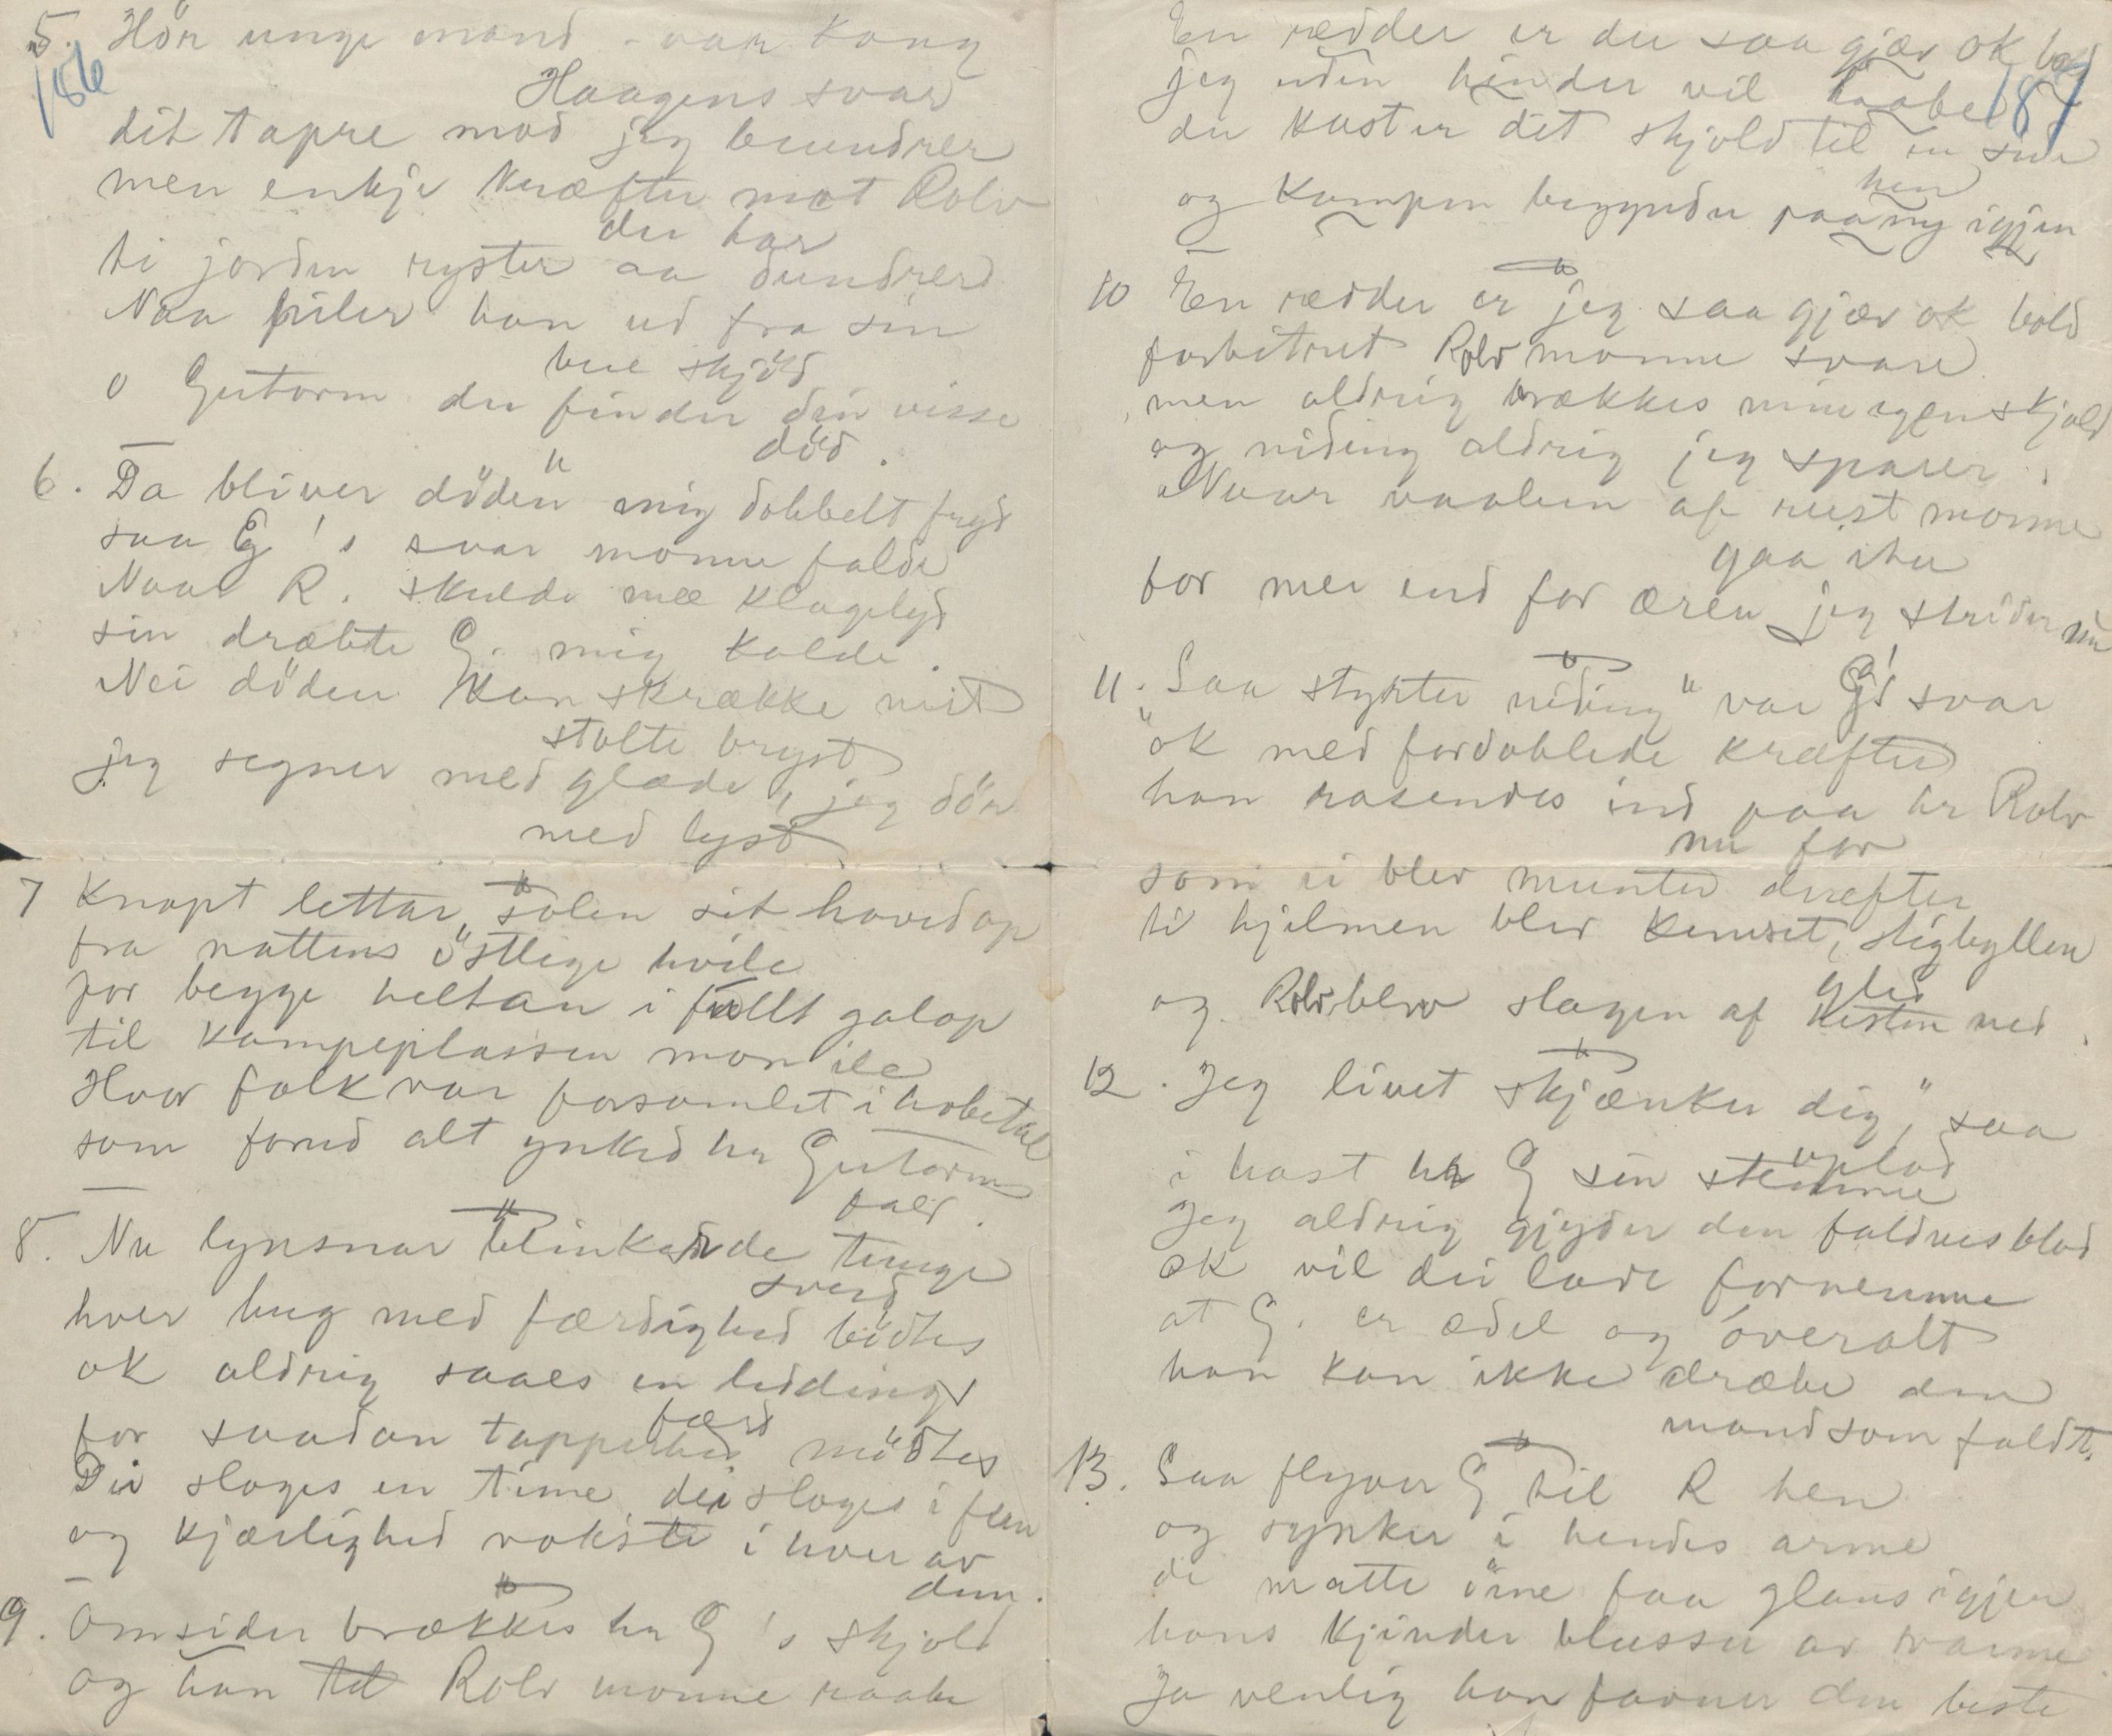 186
5. Hör unge mand - var Kong
Haagens svar
dit tapre mod jeg beundrer
men enkje kræfter mot Rolv
du har
ti jorden ryster aa dundrer
Naa piler han ud fra sin
bue skjöd
o Gutorm du finder din visse
död.
6. Da bliver döden mig dobbelt fryd
saa G's svar monne falde
Naar R. skulde mæ klagelyd
sin dræbte G. mig kalde.
Nei döden kan skrække mit
stolte bryst
jeg segner med glæde, jeg dör
med lyst
7 Knapt lettar solen sit hoved op
fra nattens östlige hvile
for begge heltan i fullt galop
til kampeplassen mon ile
Hvor folk var forsamlet i hobetal
som forud alt ynked hr Gutorms
fald.
8. Nu lynsnar blinkende tunge
sverd
hver hug med færdighed bödtes
ok aldrig saaes en leddings
færd
for saadan tapperhed mödtes
Dei sloges en time dei sloges i fem
og kjærlighed vokste i hver av
dem.
9. Omsider brækkes hr G's skjold
og han til Rolv monne raabe
187
En rædder er du saa gjæv ok bold
jeg uden hinder vil haabe
du kaster det skjold til en side
hen
og kampen begynder paa ny igjen
10 En rædder er jeg saa gjæv ok bold
forbitret Rolv monne svare
men aldrig brækkes min egen skjold
og niding aldrig jeg sparer
Naar vaaben af rust monne
gaa itu
for mer end for æren jeg strider nu
11. Saa styrter niding" var G's svar
"ok med fordoblede kræfter
han rasendes ind paa hr Rolv
nu for
som ei blev munter derefter
ti hjelmen blev kløvet, stigbyllen
gled
og Rolv blev slagen af hesten ned.
12. Jeg livet skjænker dig," saa
oplod
i hast hr G sin stemme
Jeg aldrig gjyder den faldnes blod
ok vil dei lade fornemme
at G. er ædel og overalt
han kan ikke dræbe den
mand som faldt.
13. Saa flyver G til R hen
og synker i hendes arme
de matte öine faa glans igjen
hans kjinder blusser av varme
Ja venlig han favner den beste